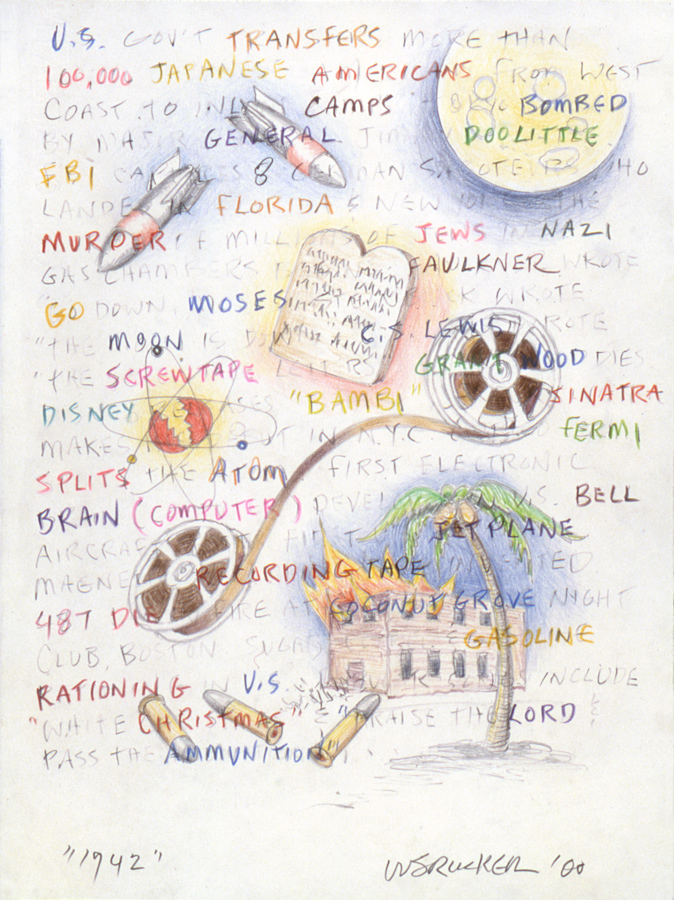 U.S. GOV'T TRANSFERS MORE THAN
100,000 JAPANESE AMERICANS FROM WEST
COAST TO CAMPS BOMBED
BY MAJOR GENERAL DOOLITTLE.
FBI 8 GERMAN SABOTEURS WHO
LANDED IN FLORIDA & NEW THE
MURDER OF MILLIONS OF JEWS IN NAZI
GAS CHAMBERS FAULKNER WROTE
"GO DOWN, MOSES WROTE
"THE MOON IS DOWN C.S. LEWIS WROTE
"THE SCREWTAPE LETTERS GRANT WOOD DIES
DISNEY "BAMBI" SINATRA
MAKES IN N.Y.C. FERMI
SPLITS THE ATOM FIRST ELECTRONIC
BRAIN (COMPUTER) U.S. BELL
AIRCRAFT FIRST JET PLANE
RECORDING TAPE INVENTED.
487 DIE FIRE AT COCOANUT GROVE NIGHT
CLUB, BOSTON. SUGAR GASOLINE
RATIONING IN U.S INCLUDE
"WHITE CHRISTMAS" & "PRAISE THE LORD &
PASS THE AMMUNITION"
"1942"
WSRUCKER '00